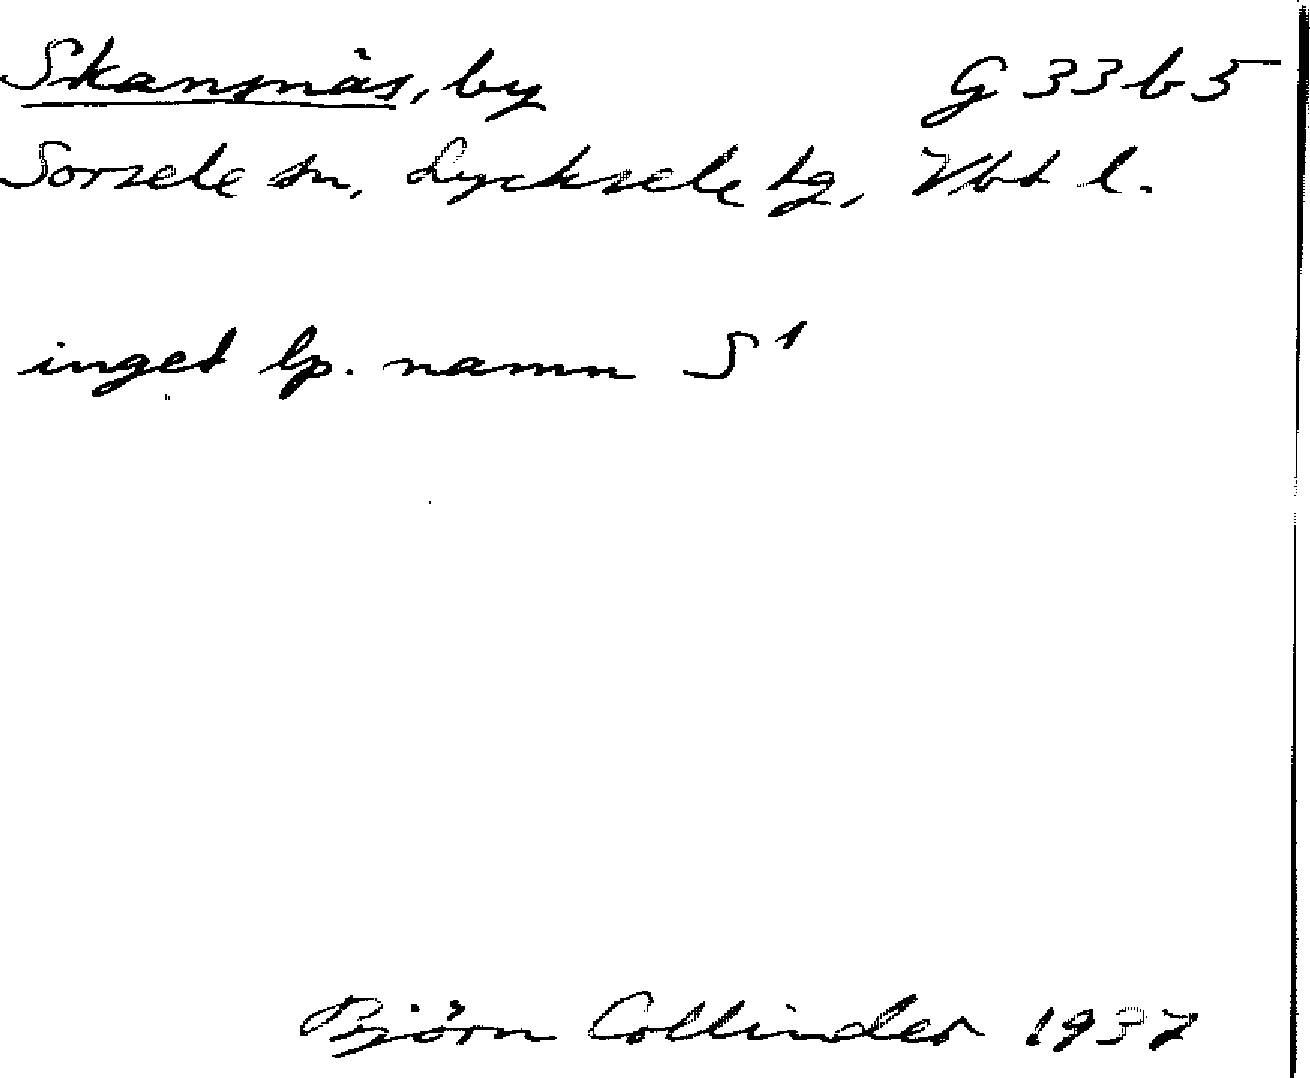 Skansnäs, by G 33 b 5
Sorsele sn, Lycksele tg, Vbt l.
inget lp. namn S¹
Björn Collinder 1937